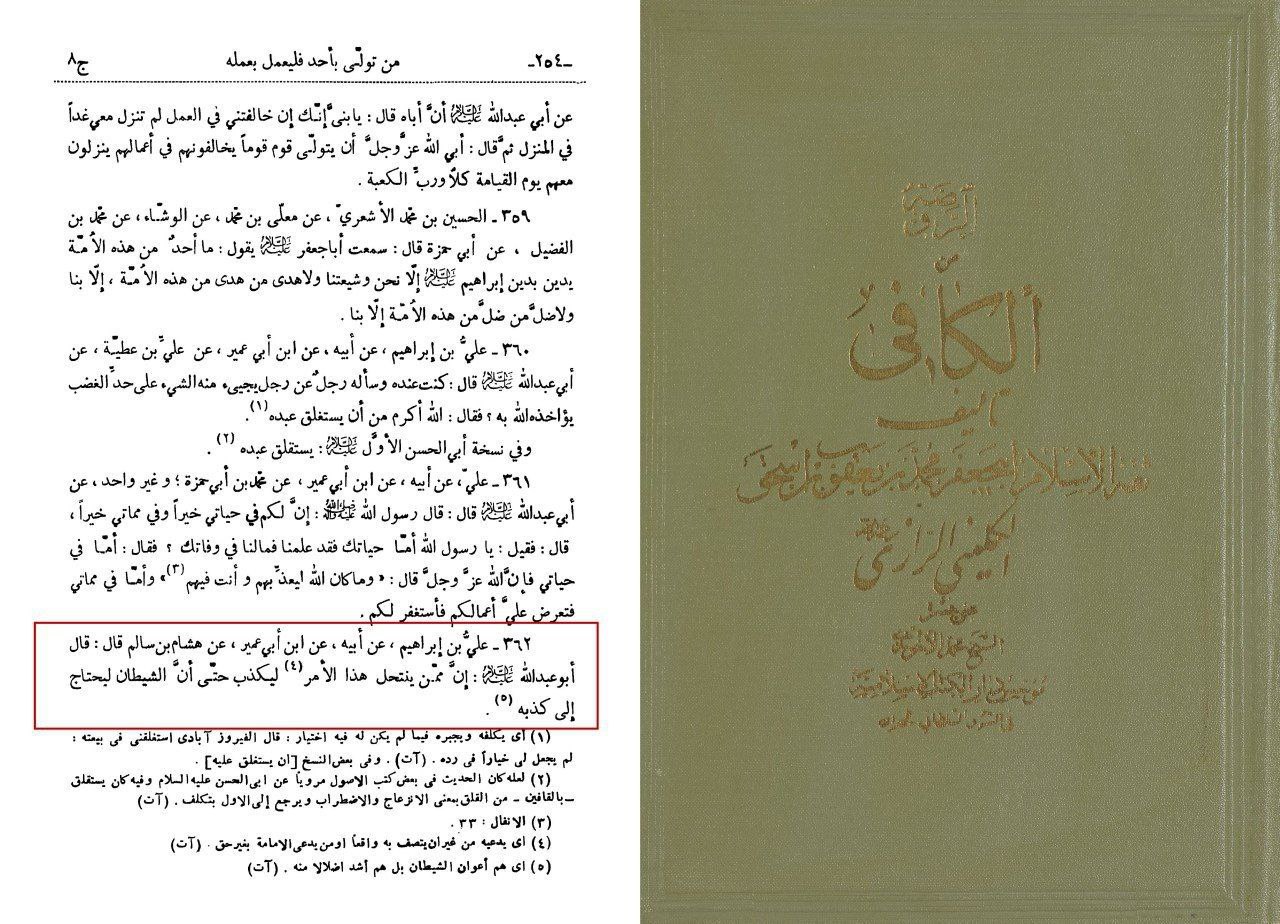 -٢٥٤- من تولّى بأحد فليعمل بعمله ج٨
عن أبي عبدالله عَلَيْهِ السَّلَام أنَّ أباه قال : يابنيَّ إنّك إن خالفتني في العمل لم تنزل معي غداً
في المنزل ثمَّ قال : أبى الله عزَّ وجلَّ أن يتولّى قوم قوماً يخالفونهم في أعمالهم ينزلون
معهم يوم القيامة كلاّ وربِّ الكعبة .
٣٥٩ ـ الحسين بن محمد الأشعريّ ، عن معلّى بن محمد ، عن الوشّاء ، عن محمد بن
الفضيل ، عن أبي حمزة قال : سمعت أباجعفر عَلَيْهِ السَّلَام يقول : ما أحدٌ من هذه الأمّة
يدين بدين إبراهيم عَلَيْهِ السَّلَام إلّا نحن وشيعتنا ولاهدى من هدى من هذه الأمّة ، إلّا بنا
ولاضلَّ من ضلَّ من هذه الأمّة إلّا بنا .
٣٦٠ ـ عليُّ بن إبراهيم ، عن أبيه ، عن ابن أبي عمير ، عن عليِّ بن عطيّة ، عن
أبي عبدالله عَلَيْهِ السَّلَام قال : كنت عنده وسأله رجلٌ عن رجل يجيىء منه الشيء على حدِّ الغضب
يؤاخذه الله به ؟ فقال : الله أكرم من أن يستغلق عبده (١).
وفي نسخة أبي الحسن الأوَّل عَلَيْهِ السَّلَام : يستقلق عبده (٢) .
٣٦١ ـ عليّ ، عن أبيه ، عن ابن أبي عمير ، عن محمد بن أبي حمزة ؛ و غير واحد ، عن
أبي عبدالله عَلَيْهِ السَّلَام قال : قال رسول الله صلى الله عليه وآله : إنَّ لكم في حياتي خيراً وفي مماتي خيراً ،
قال : فقيل : يا رسول الله أمّا حياتك فقد علمنا فمالنا في وفاتك ؟ فقال : أمّا في
حياتي فإنَّ الله عزَّ وجلَّ قال : « وماكان الله ليعذِّبهم و أنت فيهم (٣)» وأمّا في مماتي
فتعرض عليَّ أعمالكم فأستغفر لكم .
٣٦٢ ـ عليُّ بن إبراهيم ، عن أبيه ، عن ابن أبي عمير ، عن هشام بن سالم قال : قال
أبو عبدالله عَلَيْهِ السَّلَام : إنَّ ممّن ينتحل هذا الأمر (٤) ليكذب حتّى أنَّ الشيطان ليحتاج
إلى كذبه (٥) .
(١) أى يكلفه ويجبره فيما لم يكن له فيه اختيار : قال الفيروز آبادى استغلقنى فى بيعته :
لم يجعل لى خياراً فى رده . (آت) . وفى بعض النسخ [ان يستغلق عليه] .
(٢) لعله كان الحديث فى بعض كتب الاصول مروياً عن ابى الحسن عليه السلام وفيه كان يستقلق
ـ بالقافين ـ من القلق بمعنى الانزعاج والاضطراب ويرجع إلى الاول بتكلف . (آت)
(٣) الانفال : ٣٣ .
(٤) اى يدعيه من غير ان يتصف به واقعاً او من يدعى الامامة بغير حق . (آت)
(٥) اى هم أعوان الشيطان بل هم أشد اضلالا منه . (آت)
الروضة
من
الكافي
تأليف
ثقة الإسلام أبي جعفر محمد بن يعقوب بن إسحق
الكليني الرازي